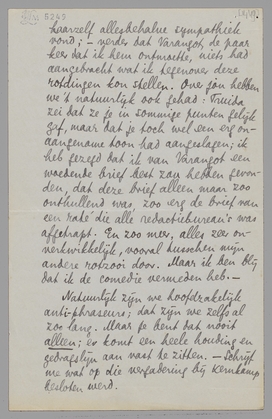 5245
haarzelf allesbehalve sympathiek
vond; – verder dat Varangot, de paar
keer dat ik hem ontmoette, niets had
aangebracht wat ik tegenover deze
rotdingen kon stellen. Over jou hebben
we 't natuurlijk ook gehad: Truida
zei dat ze je in sommige punten gelijk
gaf, maar dat je toch wel een erg on-
aangename toon had aangeslagen; ik
heb gezegd dat ik van Varangot een
woedende brief best zou hebben gevon-
den, dat deze brief alleen maar zoo
onthullend was, zoo erg de brief van
een raté die alle redactiebureau's was
afgetrapt. En zoo meer, alles zeer on-
verkwikkelijk, vooral tusschen mijn
andere rotzooi door. Maar ik ben blij
dat ik de comedie vermeden heb. –
Natuurlijk zijn we hoofdzakelijk
anti-phraseurs; dat zijn we zelfs al
zoo lang. Maar je bent dat nooit
alleen; er komt een heele houding en
gedragslijn aan vast te zitten. – Schrijf
me wat op die vergadering bij Kernkamp
besloten werd.